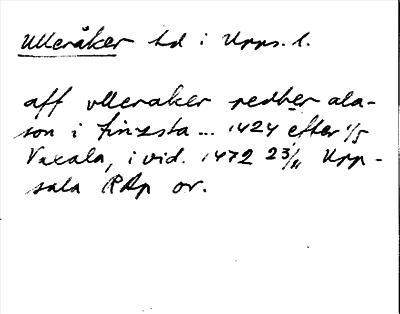 Ulleråker hd i Upps. l.
aff vlleraker redher ala-
son i finzsta ... 1424 efter 1/5
Vaxala, i vid. 1472 23/11 Upp-
sala RAp or.